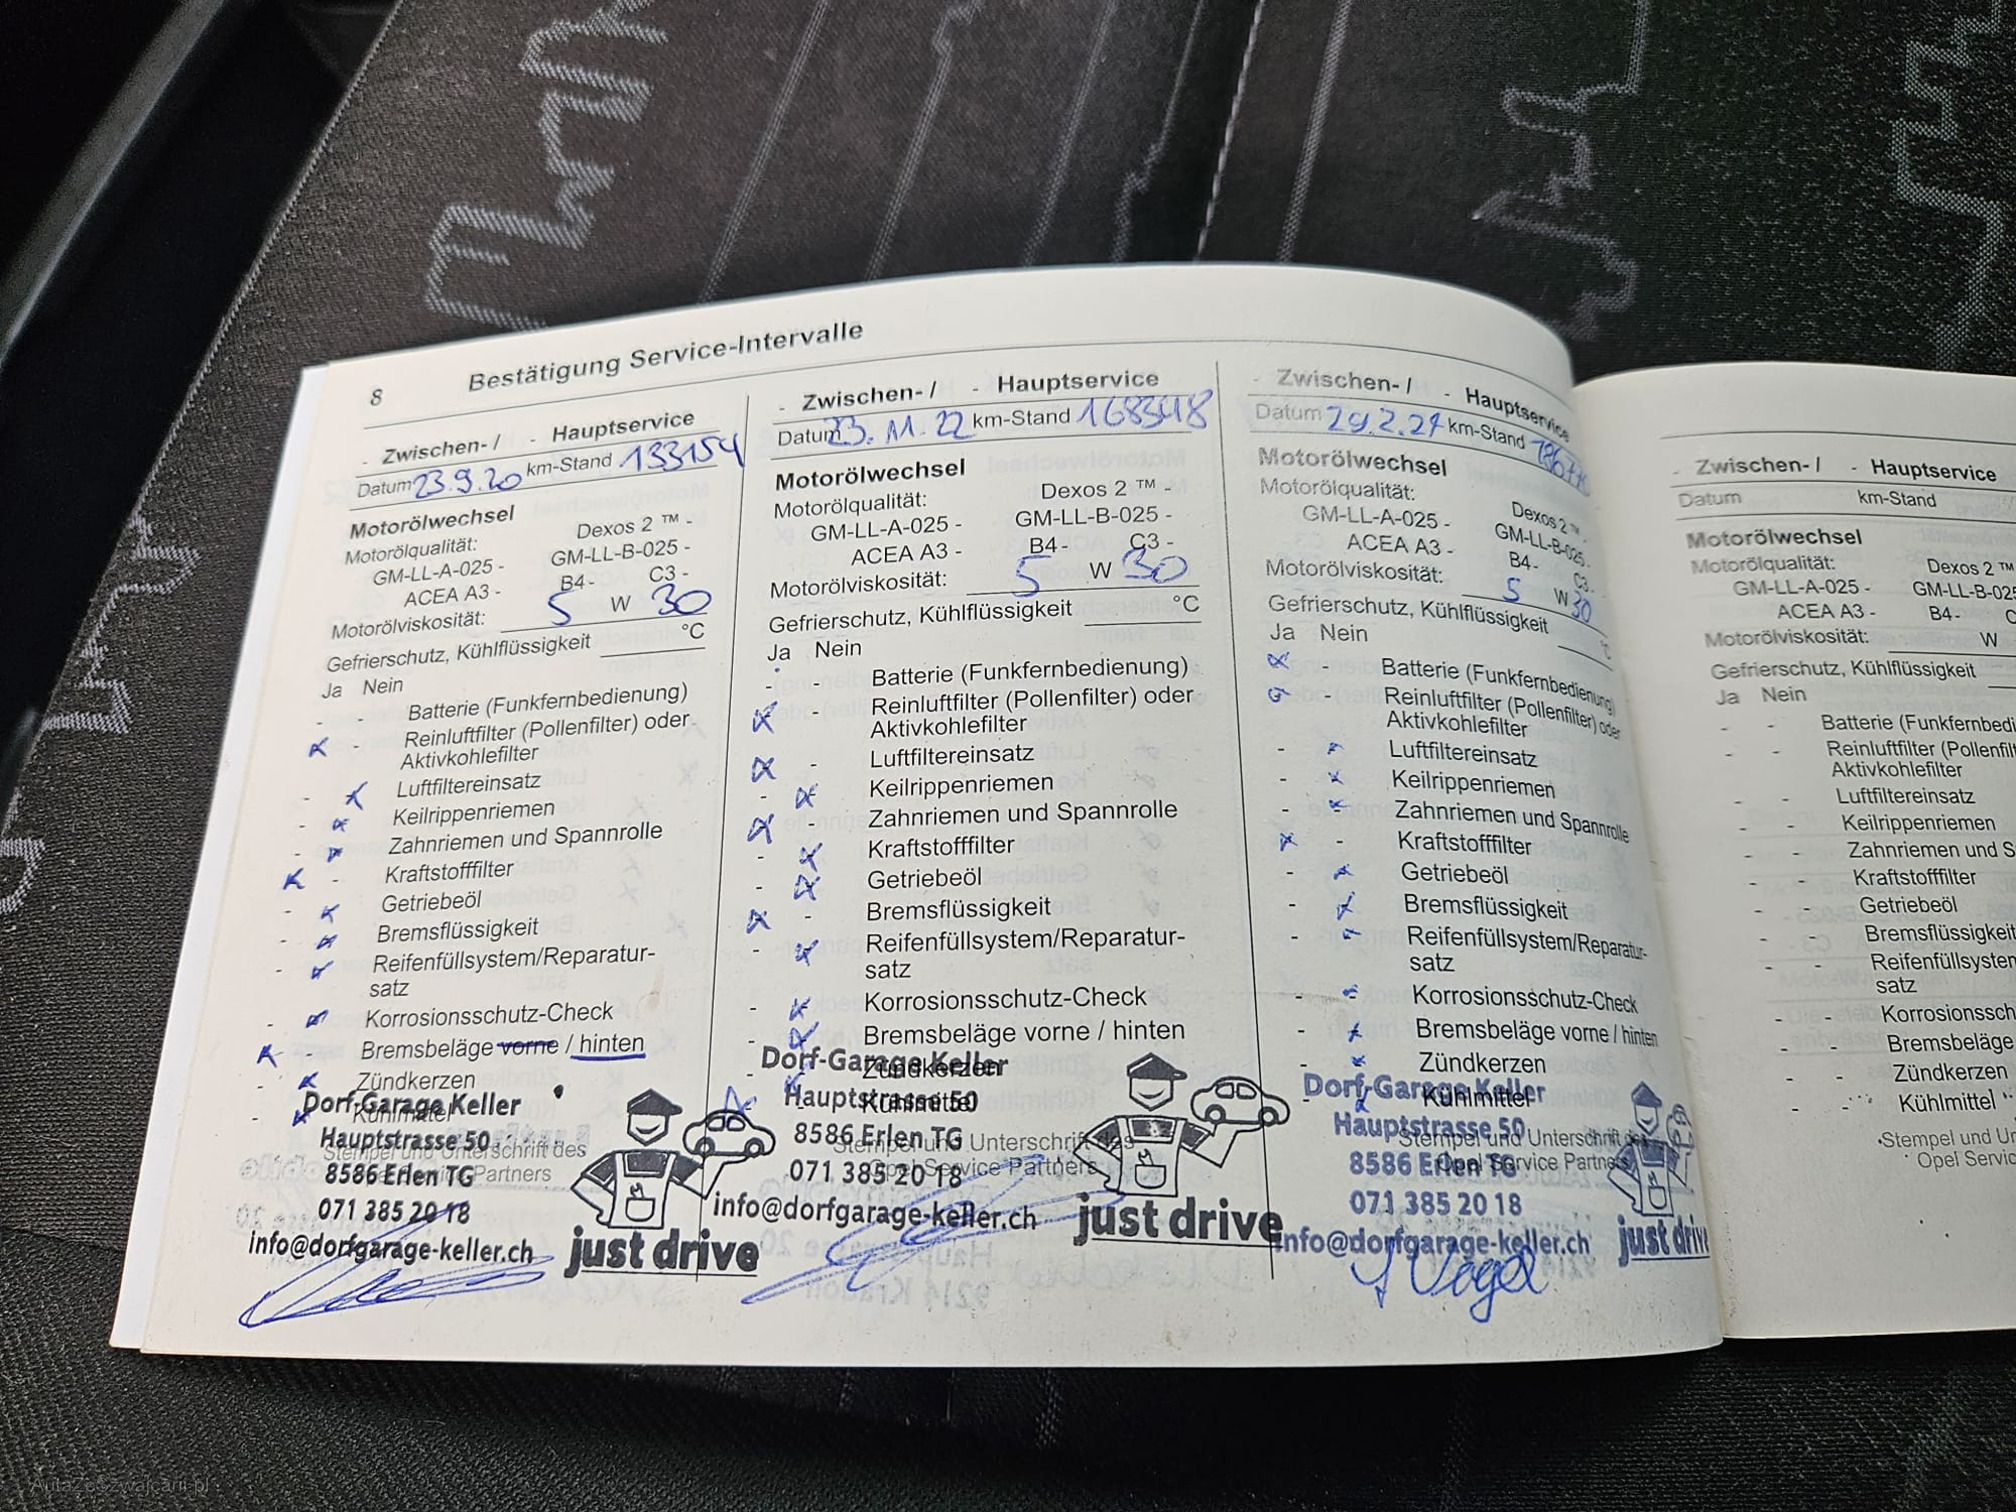 8 Bestätigung Service-Intervalle
- Zwischen- / - Hauptservice
Datum 23.9.20 km-Stand 133154
Motorölwechsel
Motorölqualität: Dexos 2 ™ -
GM-LL-A-025 - GM-LL-B-025 -
ACEA A3 - B4 - C3 -
Motorölviskosität: 5 W 30
Gefrierschutz, Kühlflüssigkeit °C
Ja Nein
- - Batterie (Funkfernbedienung)
x - Reinluftfilter (Pollenfilter) oder
Aktivkohlefilter
- x Luftfiltereinsatz
- x Keilrippenriemen
- x Zahnriemen und Spannrolle
x - Kraftstofffilter
- x Getriebeöl
- x Bremsflüssigkeit
- x Reifenfüllsystem/Reparatur-
satz
- x Korrosionsschutz-Check
x - Bremsbeläge vorne / hinten
- x Zündkerzen
- x Kühlmittel
Dorf-Garage Keller
Hauptstrasse 50
Stempel und Unterschrift des
8586 Erlen TG
Partners
071 385 20 18
info@dorfgarage-keller.ch
just drive
- Zwischen- / - Hauptservice
Datum 23.11.22 km-Stand 168348
Motorölwechsel
Motorölqualität: Dexos 2 ™ -
GM-LL-A-025 - GM-LL-B-025 -
ACEA A3 - B4 - C3 -
Motorölviskosität: 5 W 30
Gefrierschutz, Kühlflüssigkeit °C
Ja Nein
- - Batterie (Funkfernbedienung)
x - Reinluftfilter (Pollenfilter) oder
Aktivkohlefilter
x - Luftfiltereinsatz
- x Keilrippenriemen
x - Zahnriemen und Spannrolle
- x Kraftstofffilter
- x Getriebeöl
x - Bremsflüssigkeit
- x Reifenfüllsystem/Reparatur-
satz
- x Korrosionsschutz-Check
- x Bremsbeläge vorne / hinten
- x Zündkerzen
x - Kühlmittel
Dorf-Garage Keller
Hauptstrasse 50
8586 Erlen TG
Stempel und Unterschrift des
Opel Service Partners
071 385 20 18
info@dorfgarage-keller.ch
just drive
- Zwischen- / - Hauptservice
Datum 29.2.24 km-Stand
Motorölwechsel
Motorölqualität: Dexos 2 ™
GM-LL-A-025 - GM-LL-B-025-
ACEA A3 - B4- C3 -
Motorölviskosität: 5 W 30
Gefrierschutz, Kühlflüssigkeit °C
Ja Nein
x - Batterie (Funkfernbedienung)
x - Reinluftfilter (Pollenfilter) oder
Aktivkohlefilter
- x Luftfiltereinsatz
- x Keilrippenriemen
- x Zahnriemen und Spannrolle
x - Kraftstofffilter
- x Getriebeöl
- x Bremsflüssigkeit
- x Reifenfüllsystem/Reparatur-
satz
- x Korrosionsschutz-Check
- x Bremsbeläge vorne / hinten
- x Zündkerzen
x Kühlmittel
Dorf-Garage Keller
Hauptstrasse 50
Stempel und Unterschrift
8586 Erlen TG
Opel Service Partners
071 385 20 18
info@dorfgarage-keller.ch
just driv
J Vogel
- Zwischen- / - Hauptservice
Datum km-Stand
Motorölwechsel
Motorölqualität: Dexos 2 ™
GM-LL-A-025 - GM-LL-B-025
ACEA A3 - B4- C
Motorölviskosität: W
Gefrierschutz, Kühlflüssigkeit
Ja Nein
- - Batterie (Funkfernbedi
- - Reinluftfilter (Pollenfilt
Aktivkohlefilter
- - Luftfiltereinsatz
- - Keilrippenriemen
- - Zahnriemen und S
- - Kraftstofffilter
- - Getriebeöl
- - Bremsflüssigkeit
- - Reifenfüllsystem
satz
- - Korrosionssch
- - Bremsbeläge
- - Zündkerzen
- - Kühlmittel
Stempel und Un
Opel Servic
AutaZeSzwajcarii.pl